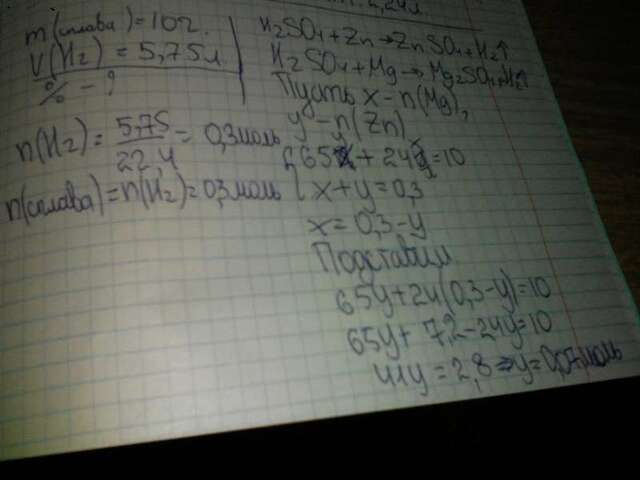 2,24л.
m(сплава)=10г.
V(H₂) = 5,75л
% - ?
n(H₂)= 5,75/22,4 = 0,3моль
n(сплава)=n(H₂)=0,3моль
H₂SO₄+Zn→ZnSO₄+H₂↑
H₂SO₄+Mg→Mg₂SO₄+H₂↑
Пусть x-n(Mg),
y-n(Zn)
{65y+24x=10
x+y=0,3
x=0,3-y
Подставим
65y+24(0,3-y)=10
65y+7,2-24y=10
41y=2,8⇒y=0,07моль